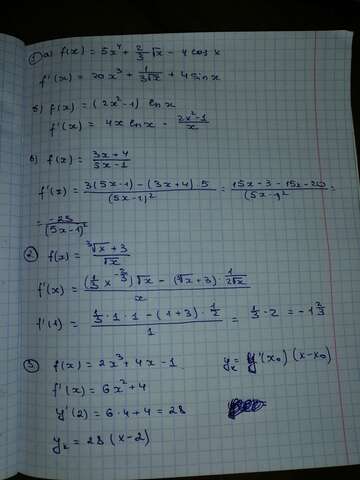 ① a) f(x) = 5x⁴ + 2/3 √x - 4 cos x
f'(x) = 20x³ + 1/(3√x) + 4 sin x
б) f(x) = (2x²-1) ln x
f'(x) = 4x ln x - (2x²-1)/x
в) f(x) = (3x+4)/(5x-1)
f'(x) = (3(5x-1) - (3x+4)·5)/(5x-1)² = (15x-3-15x-20)/(5x-1)² =
= -23/(5x-1)²
② f(x) = (∛x+3)/√x
f'(x) = ((1/3 x^(-2/3))√x - (∛x+3)·1/(2√x))/x
f'(1) = (1/3·1·1 - (1+3)·1/2)/1 = 1/3·2 = -1 2/3
③ f(x) = 2x³ + 4x - 1 yₖ = y'(x₀)(x-x₀)
f'(x) = 6x² + 4
y'(2) = 6·4 + 4 = 28
yₖ = 28(x-2)